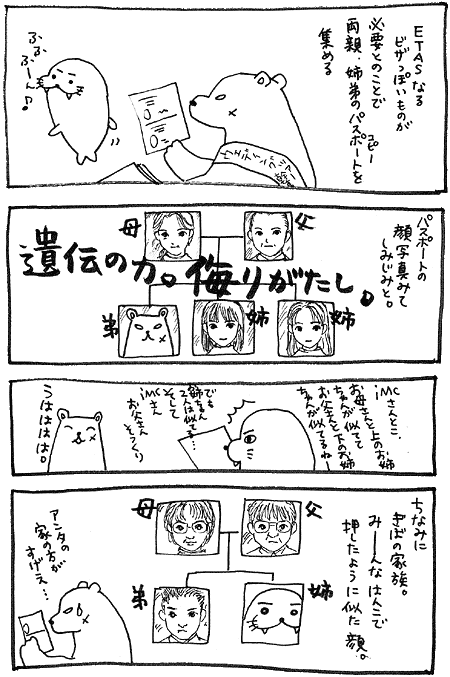 ETASなる
ビザっぽいものが
必要とのことで
両親、姉弟のパスポートを
コピー
集める
ふふふーん♪
パスポートの
顔写真みて
しみじみと。
父
母
遺伝の力。侮りがたし。
姉
姉
弟
iMCさんとこ
お母さんと上のお姉
ちゃんが似てて
お父さんと下のお姉
ちゃんが似てるねー
でも
姉ちゃん
2人は似てる…
そして
iMCさん
お父さん
そっくり
うはははは。
ちなみに
きぼの家族。
みーんなはんこで
押したように似た
顔。
父
母
姉
弟
アンタの
家の方が
すげえ…